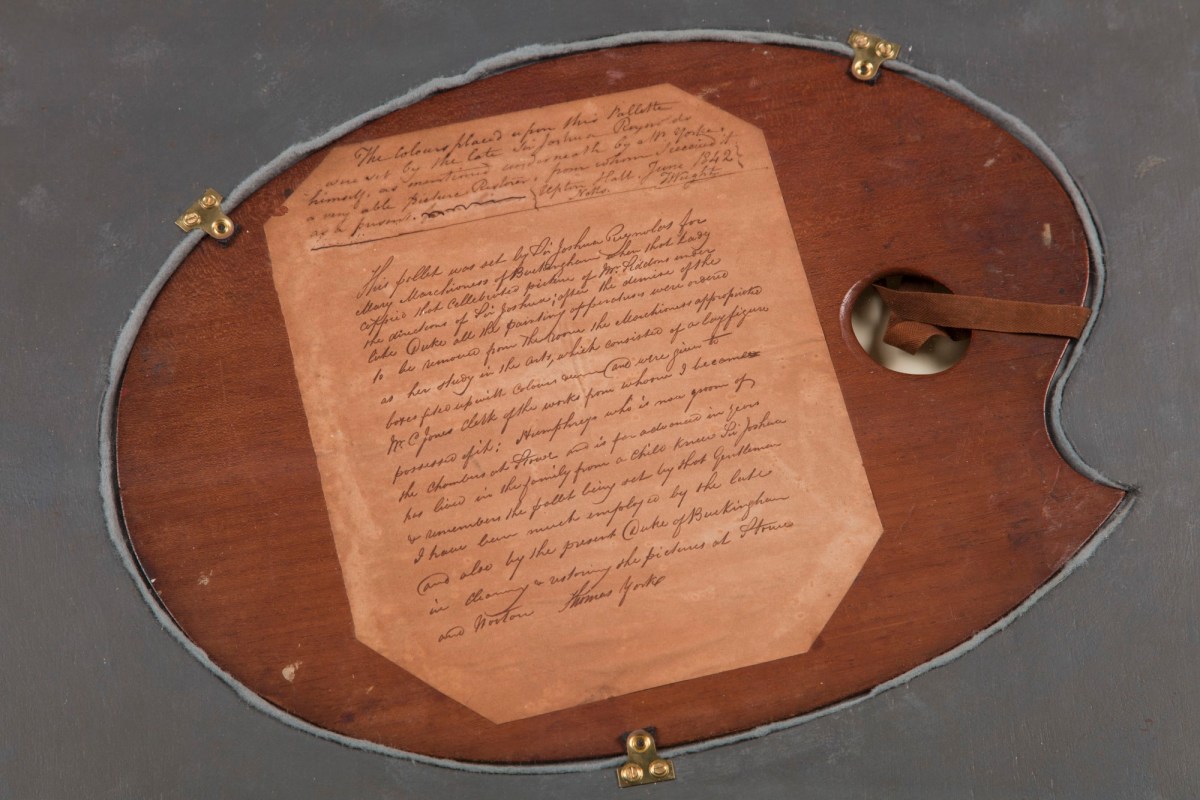 The Colours placed upon this Pallette
were set by the late Sir Joshua Reynolds
himself, as mentioned underneath by a Mr Yorke,
a very able Picture Restorer, from whom I received it
as a present. Upton Hall. June 1842
Notts. Wright
This pallet was set by Sir Joshua Reynolds for
Mary Marchioness of Buckingham when that Lady
coppied that Cellebrated picture of Mrs Siddons under
the directions of Sir Joshua; after the demise of the
late Duke all the painting apperatuses were ordered
to be removed from the room the Marchioness appropriated
as her study in the arts, which consisted of a lay figure
boxes filed up with colours and were given to
Mr C Jones Clerk of the works from whoom I became
possessed of it: Humphreys who is now groom of
the Chambers at Stowe and is far advanced in years
has lived in the family from a Child knew Sir Joshua
& remembers the pallet being set by that Gentleman
I have been much employed by the late
and also by the present Duke of Buckingham
in cleaning & restoring the pictures at Stowe
and Wotton Thomas Yorke